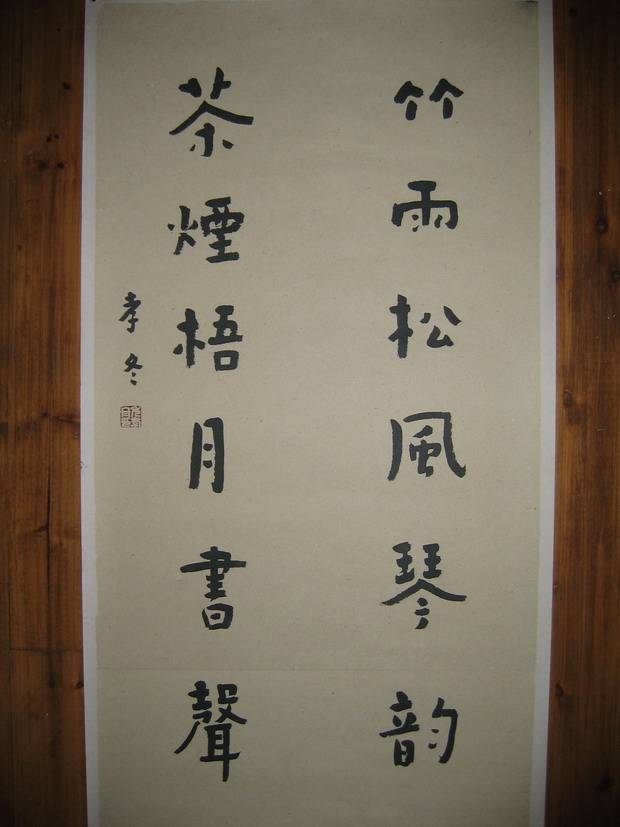 竹雨松風琴韵
茶煙梧月書聲
孝冬